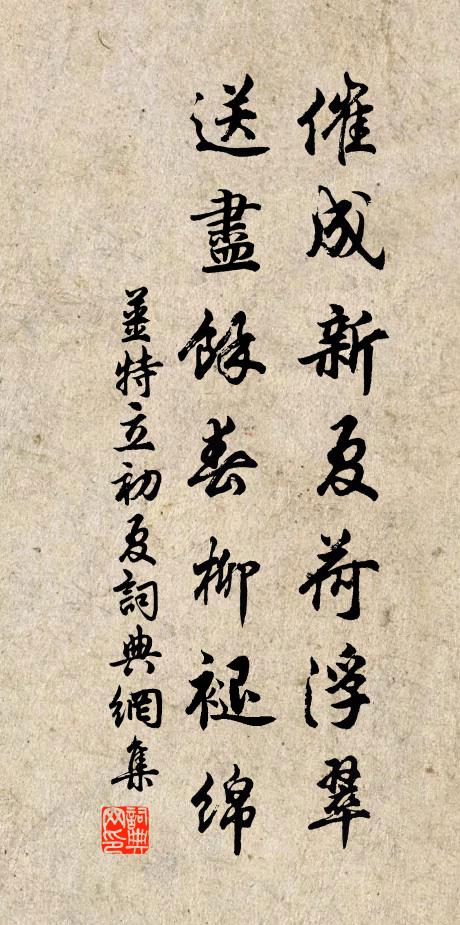 催成新夏荷浮翠
送盡餘春柳褪綿
薑特立初夏詞典網集
詞典網印